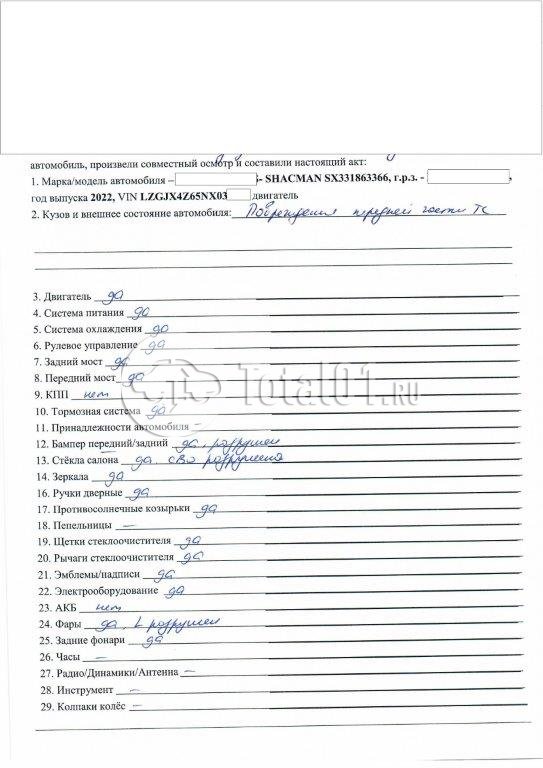 автомобиль, произвели совместный осмотр и составили настоящий акт:
1. Марка/модель автомобиля – - SHACMAN SX331863366, г.р.з. - ,
год выпуска 2022, VIN LZGJX4Z65NX03 двигатель
2. Кузов и внешнее состояние автомобиля: Повреждения передней части ТС
3. Двигатель да
4. Система питания да
5. Система охлаждения да
6. Рулевое управление да
7. Задний мост да
8. Передний мост да
Total01.RU
9. КПП нет
10. Тормозная система да
11. Принадлежности автомобиля –
12. Бампер передний/задний да, разрушен
13. Стёкла салона да, СВО разрушено
14. Зеркала да
16. Ручки дверные да
17. Противосолнечные козырьки да
18. Пепельницы –
19. Щетки стеклоочистителя да
20. Рычаги стеклоочистителя да
21. Эмблемы/надписи да
22. Электрооборудование да
23. АКБ нет
24. Фары да, L разрушен
25. Задние фонари да
26. Часы –
27. Радио/Динамики/Антенна –
28. Инструмент –
29. Колпаки колёс –